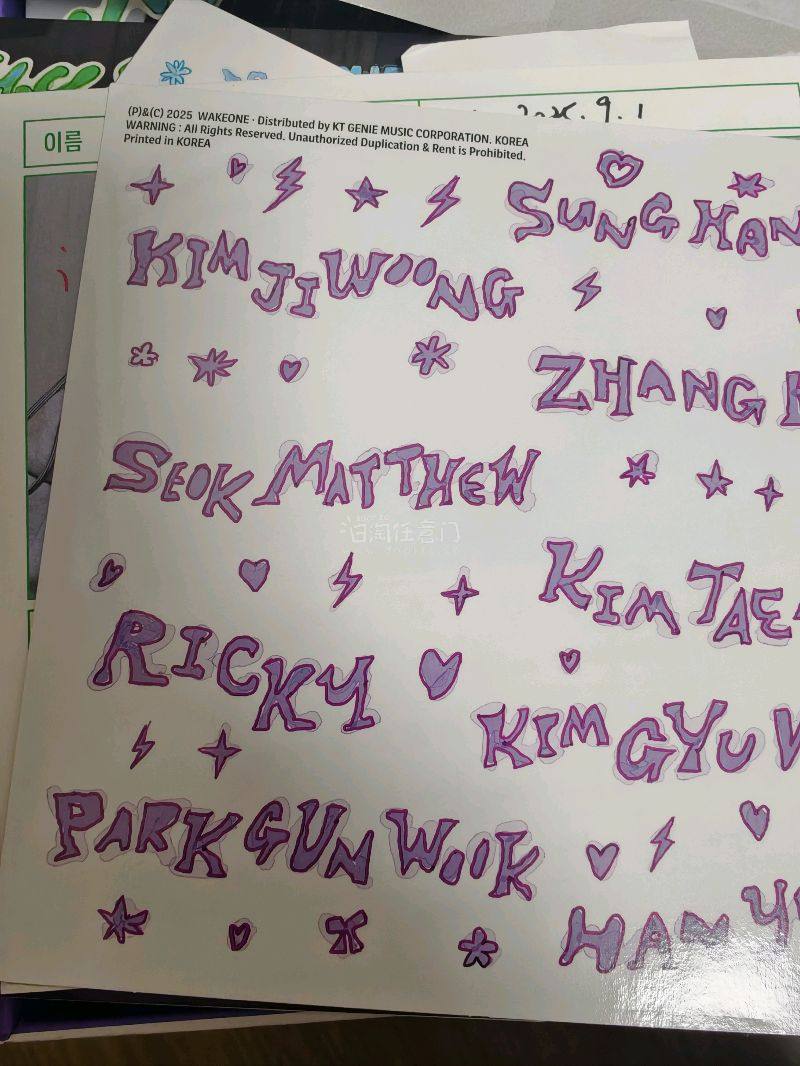 (P)&(C) 2025 WAKEONE · Distributed by KT GENIE MUSIC CORPORATION. KOREA
WARNING : All Rights Reserved. Unauthorized Duplication & Rent is Prohibited.
Printed in KOREA
이름
9.1
SUNG HAN
KIM JIWOONG
ZHANG
SEOK MATTHEW
KIM TAE
RICKY
KIM GYU V
PARK GUN WOOK
HAN Y
淘任意门